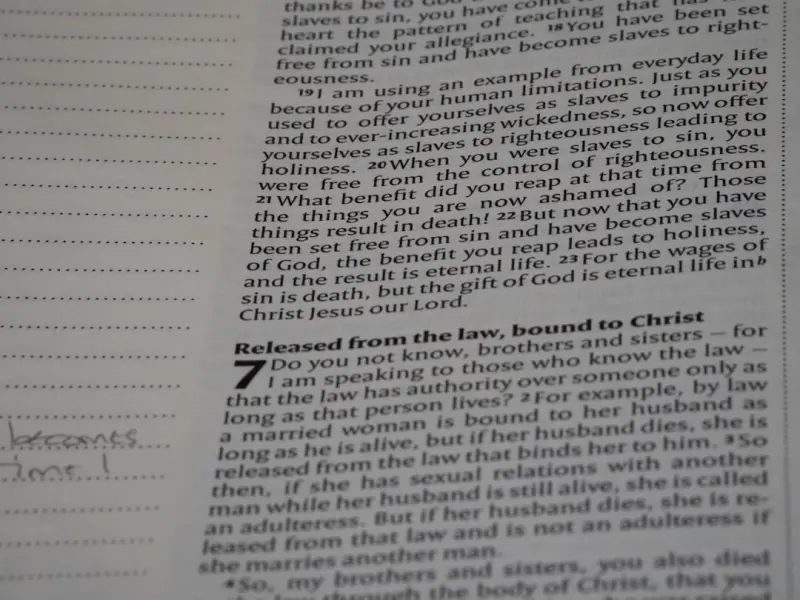 thanks be to God
slaves to sin, you have come to
heart the pattern of teaching that has
claimed your allegiance. 18 You have been set
free from sin and have become slaves to right-
eousness.
19 I am using an example from everyday life
because of your human limitations. Just as you
used to offer yourselves as slaves to impurity
and to ever-increasing wickedness, so now offer
yourselves as slaves to righteousness leading to
holiness. 20 When you were slaves to sin, you
were free from the control of righteousness.
21 What benefit did you reap at that time from
the things you are now ashamed of? Those
things result in death! 22 But now that you have
been set free from sin and have become slaves
of God, the benefit you reap leads to holiness,
and the result is eternal life. 23 For the wages of
sin is death, but the gift of God is eternal life in b
Christ Jesus our Lord.
Released from the law, bound to Christ
7 Do you not know, brothers and sisters – for
I am speaking to those who know the law –
that the law has authority over someone only as
long as that person lives? 2 For example, by law
a married woman is bound to her husband as
long as he is alive, but if her husband dies, she is
released from the law that binds her to him. 3 So
then, if she has sexual relations with another
man while her husband is still alive, she is called
an adulteress. But if her husband dies, she is re-
leased from that law and is not an adulteress if
she marries another man.
4 So, my brothers and sisters, you also died
the law through the body of Christ, that you
becomes
time!